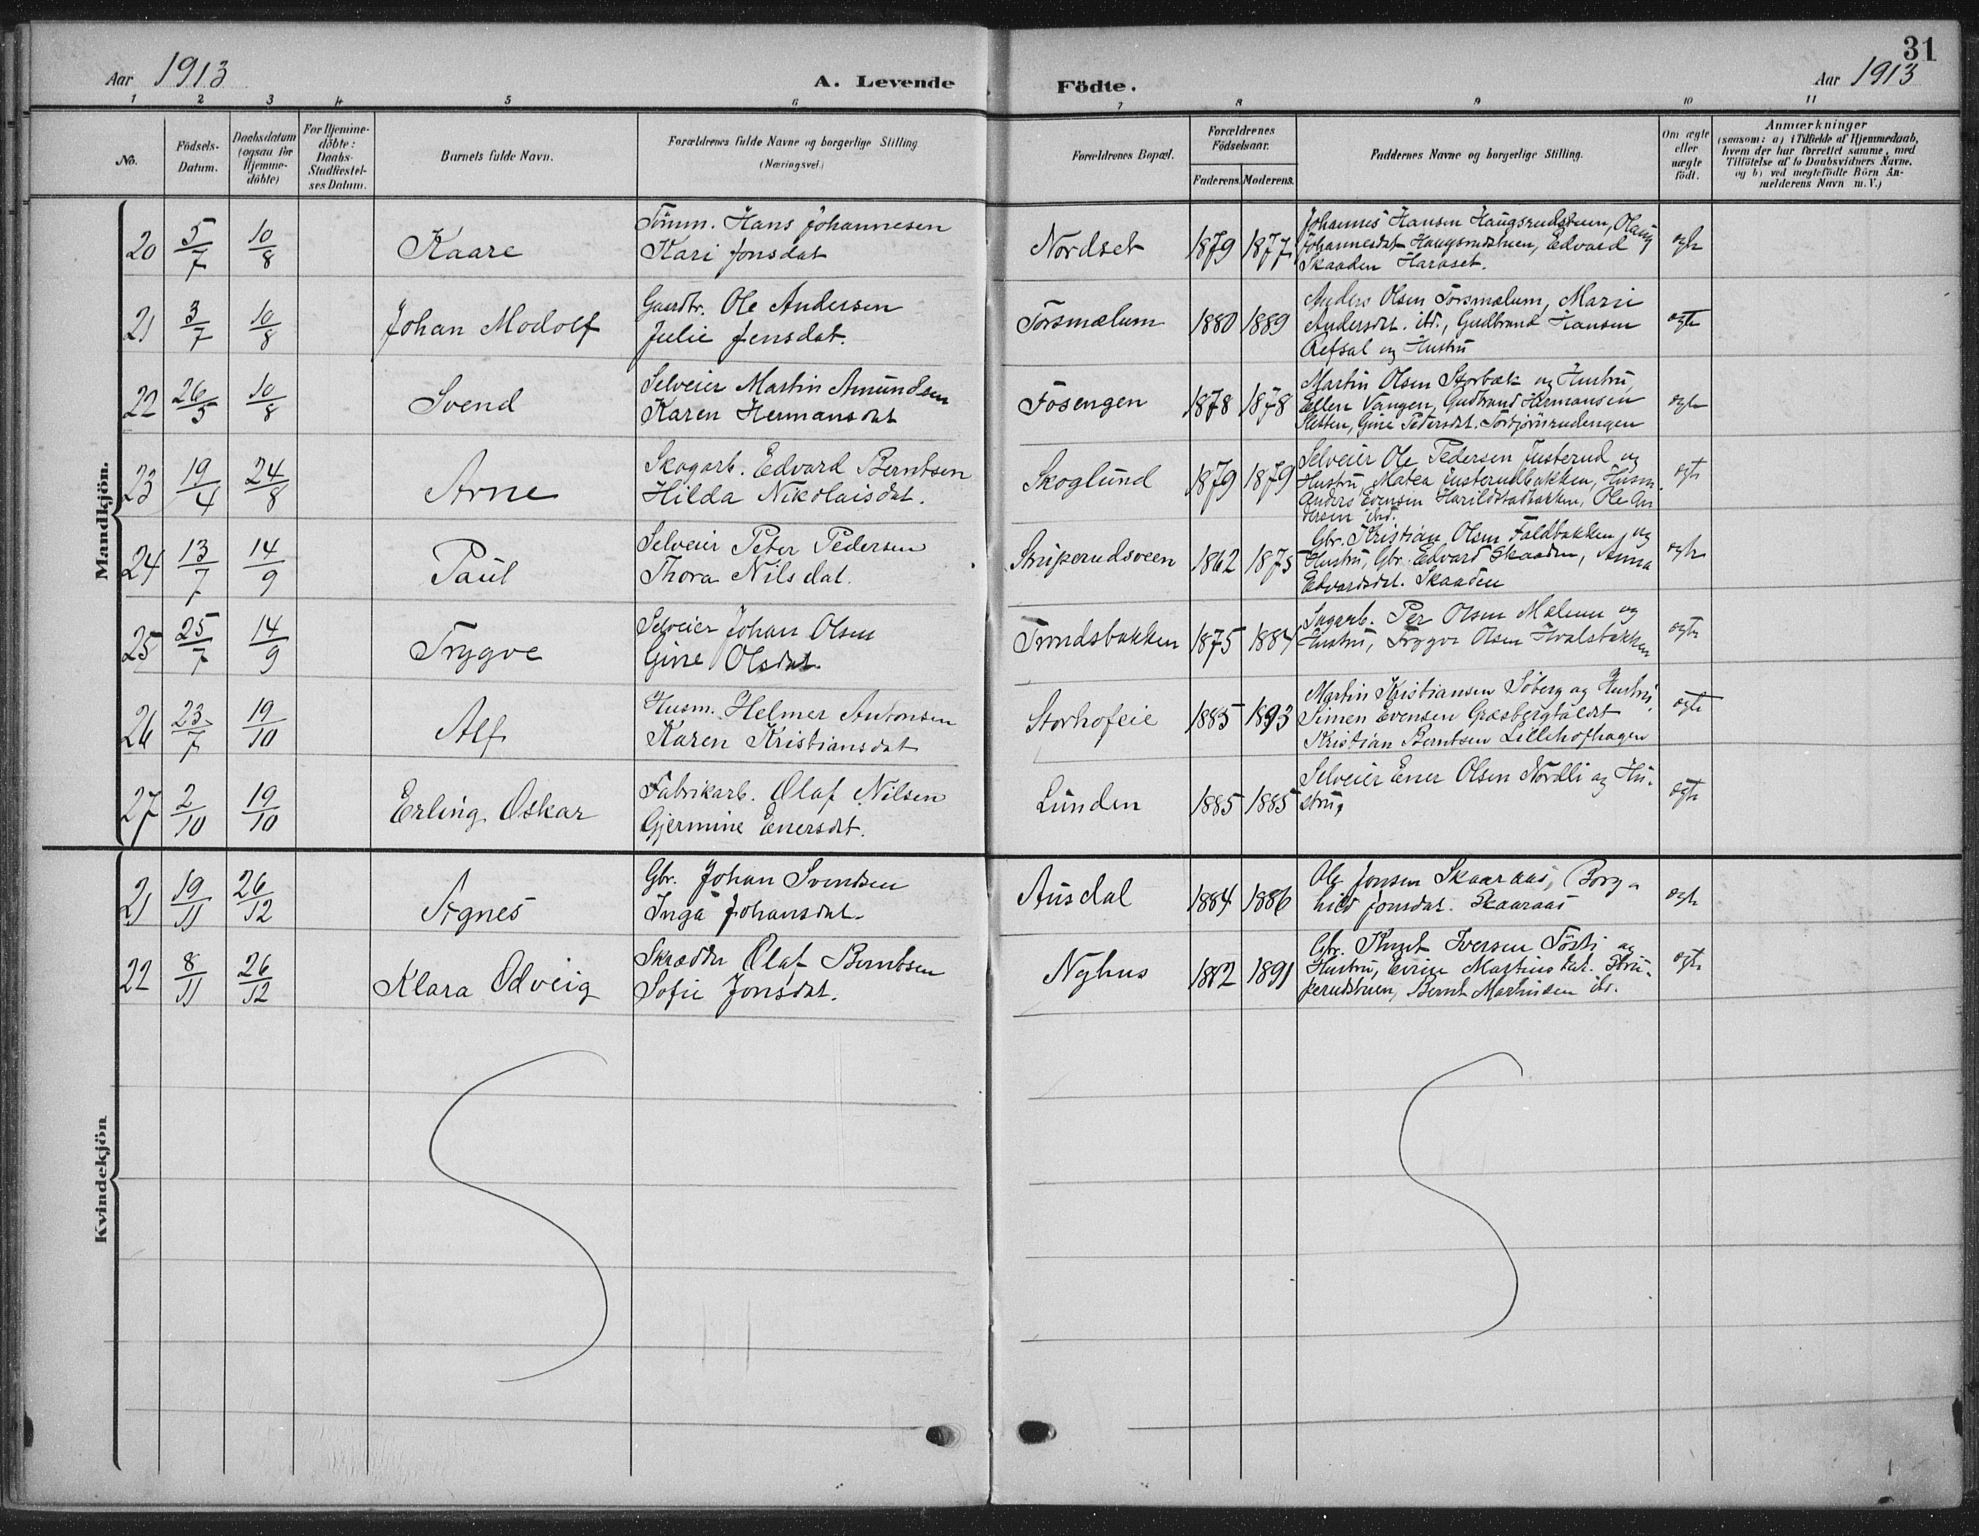 31
Aar 1913
A. Levende Födte.
Aar 1913
1 2 3 4 5 6 7 8 9 10 11
No.
Födsels-
Datum.
Daabsdatum
(ogsaa for
Hjemme-
döbte)
For Hjemme-
döbte:
Daabs-
Stadfæstel-
ses Datum.
Barnets fulde Navn.
Forældrenes fulde Navne og borgerlige Stilling
(Næringsvei.)
Forældrenes Bopæl.
Forældrenes
Födselsaar.
Faderens. Moderens.
Faddernes Navne og borgerlige Stilling.
Om ægte
eller
uægte
födt.
Anmærkninger
(saasom: a) i Tilfælde af Hjemmedaab,
hvem der har forrettet samme, med
Tilföielse af to Daabsvidners Navne,
og b) ved uægtefödte Börn An-
melderens Navn m. V.)
Mandkjön.
20 5/7 10/8 Kaare
Tömm. Hans Johannesen
Kari Jonsdat
Nordset 1879 1877
Johannes Hansen Haugsrudstuen, Olaug
Johannesdat Haugsrudstuen, Edvard
Skaaden Haraset.
egte
21 3/7 10/8 Johan Modolf
Gaardbr. Ole Andersen
Julie Jensdat.
Torsmælum 1880 1889
Anders Olsen Torsmælum, Marie
Andersdat. ibd., Gudbrand Hansen
Refsal og Hustru
egte
22 26/5 10/8 Svend
Selveier Martin Amundsen
Karen Hermansdat
Fosengen 1878 1878
Martin Olsen Storbæk og Hustru,
Ellen Vangen, Gudbrand Hermansen
Sletten, Gine Pedersdat. Torbjörnrudengen
egte
23 19/4 24/8 Arne
Skogarb. Edvard Berntsen
Hilda Nikolaisdat.
Skoglund 1879 1879
Selveier Ole Pedersen Justerud og
Hustru, Matea Justerudbakken, Husm.
Anders Evensen Harildstadbakken, Ole An-
dersen ibd.
egte
24 13/7 14/9 Paul
Selveier Peter Pedersen
Thora Nilsdat.
Striperudsveen 1862 1875
Gbr. Kristian Olsen Faldbakken og
Hustru, Gbr. Edvard Skaaden, Anna
Edvardsdat. Skaaden
egte
25 25/7 14/9 Trygve
Selveier Johan Olsen
Gine Olsdat.
Trondsbakken 1875 1884
Sagarb. Per Olsen Mælum og
Hustru, Trygve Olsen Hvalsbakken
egte
26 23/7 19/10 Alf
Husm. Helmer Antonsen
Karen Kristiansdat
Storhofeie 1885 1893
Martin Kristiansen Söberg og Hustru,
Simen Evensen Græsbergtaiet
Kristian Berntsen Lillehofhagen
egte
27 2/10 19/10 Erling Oskar
Fabrikarb. Olaf Nilsen
Gjermine Enersdat.
Lunden 1885 1885
Selveier Ener Olsen Nordli og Hu-
stru,
egte
Kvindekjön
21 19/11 26/12 Agnes
Gbr. Johan Svendsen
Inga Johansdat.
Ausdal 1884 1886
Ole Jonsen Skaaraas, Borg-
hild Jonsdat. Skaaraas
egte
22 8/11 26/12 Klara Odveig
Skrædder Olaf Berntsen
Sofie Jonsdat.
Nyhus 1882 1891
Gbr. Knut Iversen Tösti og
Hustru, Martinsdat. Stru-
perudstuen, Bernt Martinsen ibd.
egte